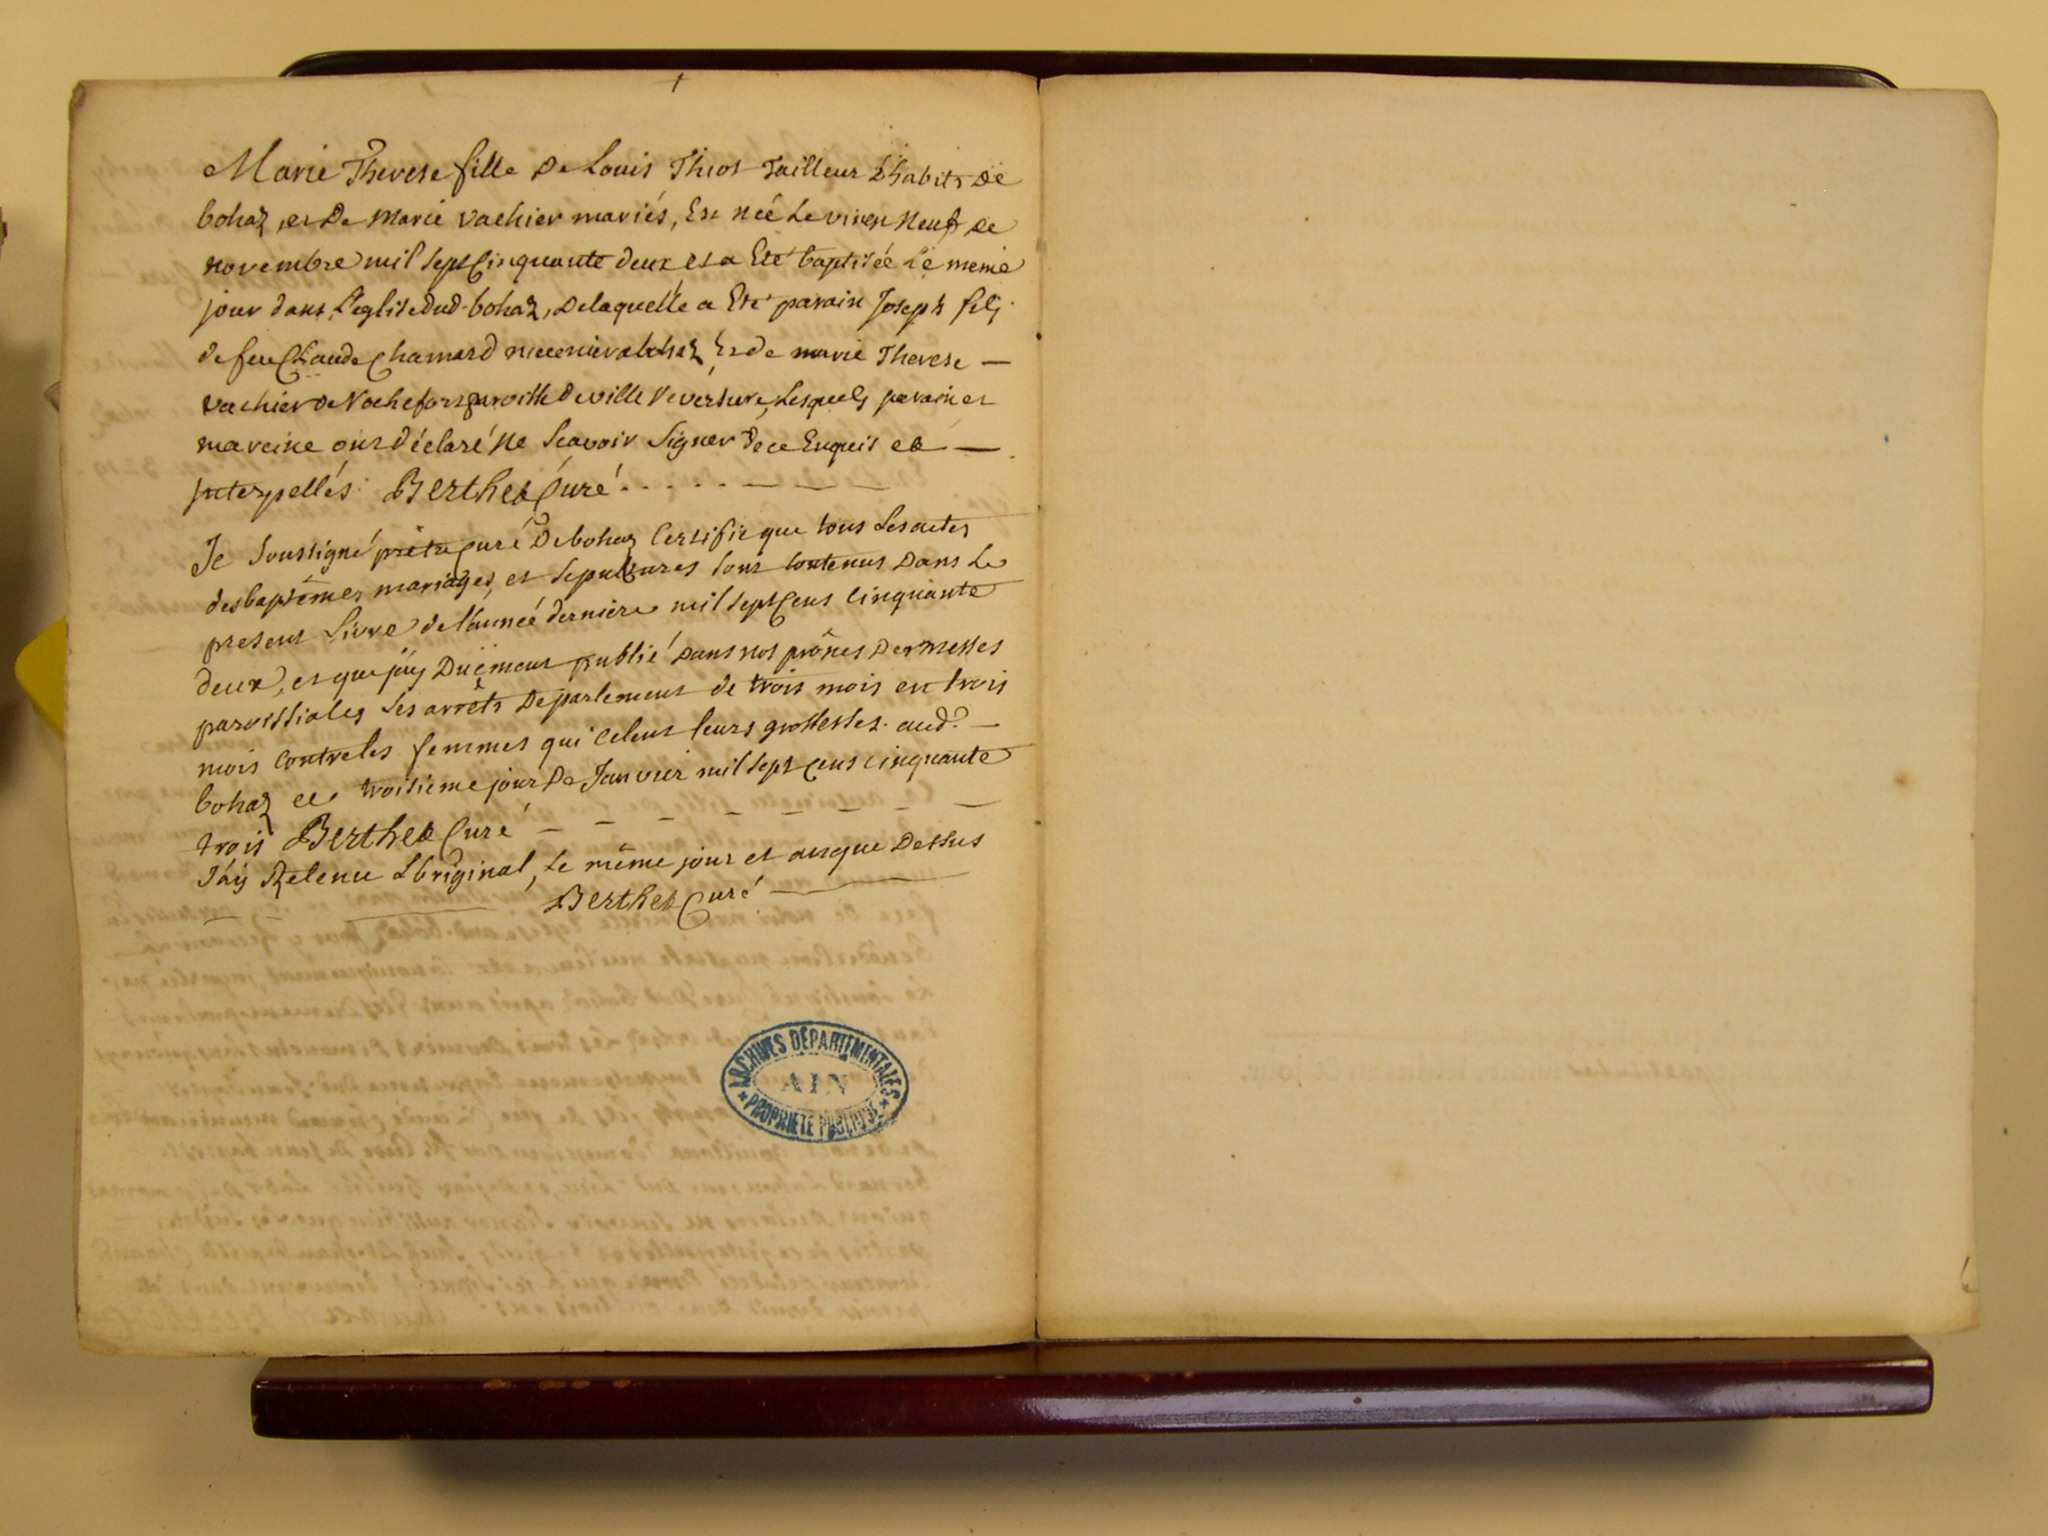 Marie Therese fille De Louis Thiot Tailleur D'habits De
bohaz, et De Marie vachier mariés, Est née Le vingt Neuf De
novembre mil sept Cinquante deux et a Eté baptisée Le meme
jour dans L'eglise dud. bohaz, De laquelle a Eté parain Joseph fils
de feu Claude Chamard a bohaz, Et de marie Therese —
vachier de Rochefort paroisse de ville Reversure, Lesquels parain et
mareine ont déclaré Ne Scavoir Signer de ce Enquis et —
Interpellés. Berthet Curé . . . . . — — —
Je Soussigné prêtre Curé De bohaz Certifie que tous Les actes
des baptêmes, mariages, et Sepultures sont Contenus Dans Le
present Livre de l'année derniere mil sept Cens Cinquante
deux, et que j'ay Duëment publié Dans nos prônes Des messes
paroissiales Les arrêts De parlement de trois mois en trois
mois Contre les femmes qui Celent leurs grossesses. aud. —
bohaz ce troisième jour De Janvier mil sept Cens Cinquante
trois Berthet Curé — — — — — — — —
J'ay Retenu L'original, Le même jour et an que Dessus
Berthet Curé —
ARCHIVES DÉPARTEMENTALES
AIN
* PROPRIÉTÉ PUBLIQUE *